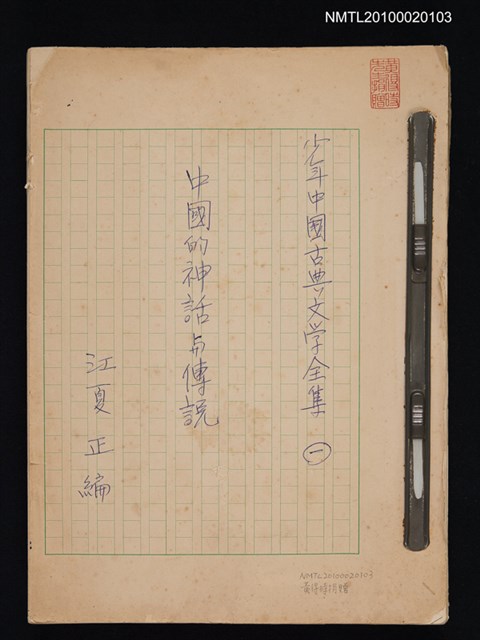 NMTL20100020103
少年中國古典文学全集 ㊀
中國的神話与傳説
江夏正編
NMTL20100020103
黃得時捐贈